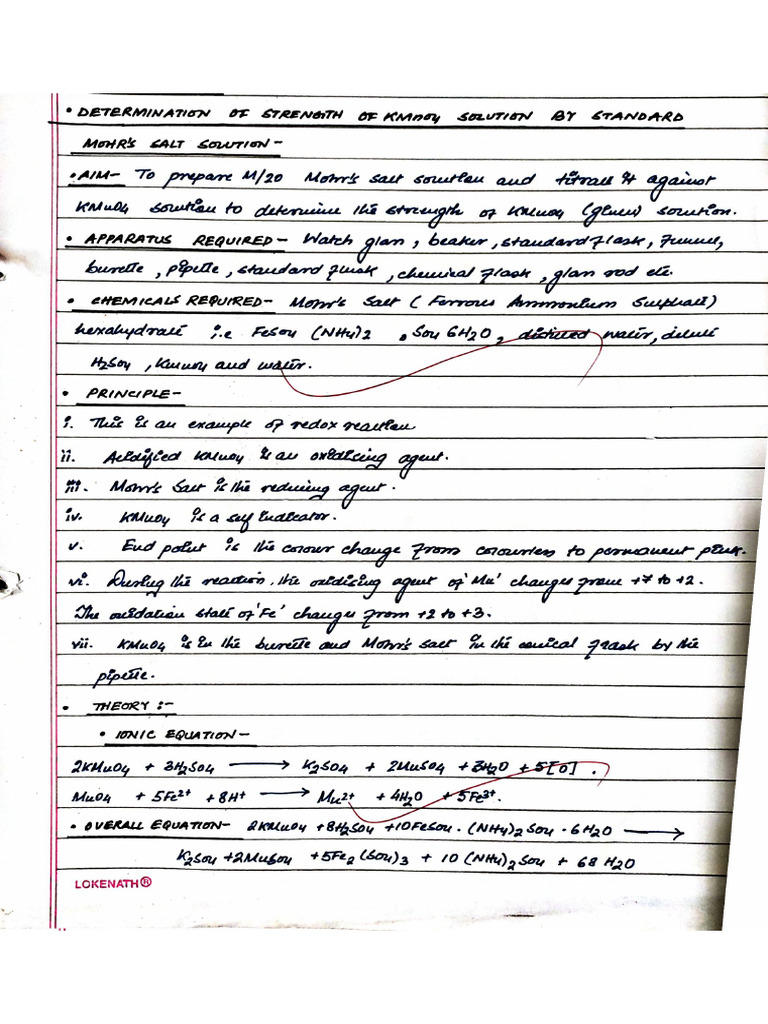 • DETERMINATION OF STRENGTH OF KMnO4 SOLUTION BY STANDARD
MOHR'S SALT SOLUTION-
• AIM- To prepare M/20 Mohr's salt solution and titrate it against
KMnO4 solution to determine the strength of KMnO4 (given) solution.
• APPARATUS REQUIRED- Watch glass, beaker, standard flask, funnel,
burette, pipette, standard flask, chemical flask, glass rod etc.
• CHEMICALS REQUIRED- Mohr's Salt (Ferrous Ammonium Sulphate)
hexahydrate i.e FeSO4 (NH4)2 .SO4 6H2O, distilled water, dilute
H2SO4, KMnO4 and water.
• PRINCIPLE-
i. This is an example of redox reaction
ii. Acidified KMnO4 is an oxidising agent.
iii. Mohr's Salt is the reducing agent.
iv. KMnO4 is a self indicator.
v. End point is the colour change from colourless to permanent pink.
vi. During the reaction, the oxidising agent of 'Mn' changes from +7 to +2.
The oxidation state of 'Fe' changes from +2 to +3.
vii. KMnO4 is in the burette and Mohr's salt in the conical flask by the
pipette.
• THEORY :-
• IONIC EQUATION-
2KMnO4 + 3H2SO4 ⟶ K2SO4 + 2MnSO4 + 3H2O + 5[O].
MnO4 + 5Fe2+ + 8H+ ⟶ Mn2+ + 4H2O + 5Fe3+.
• OVERALL EQUATION- 2KMnO4 + 8H2SO4 + 10FeSO4 · (NH4)2SO4 · 6H2O ⟶
K2SO4 + 2MnSO4 + 5Fe2(SO4)3 + 10(NH4)2SO4 + 68 H2O
LOKENATH®